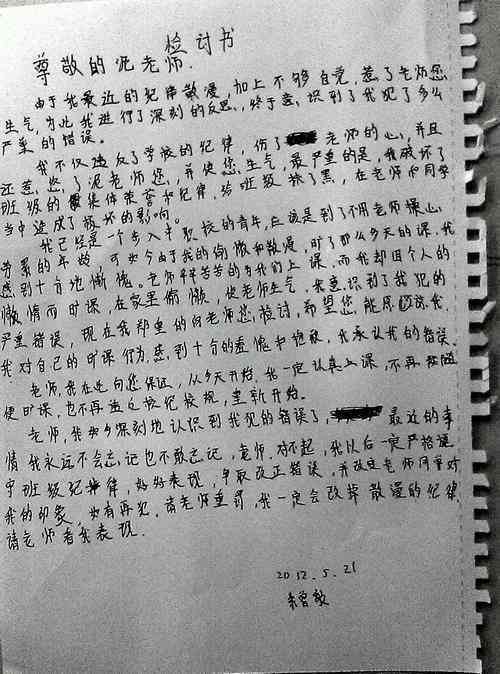 检讨书
尊敬的泥老师.
由于我最近的纪律散漫,加上不够自觉,惹了老师您
生气,为此我进行了深刻的反思,终于意识到了我犯了多么
严重的错误。
我不仅违反了学校的纪律,伤了老师的心,并且
还惹了泥老师您,并使您生气,最严重的是,我破坏了
班级的集体荣誉和纪律,给班级抹了黑,在老师和同学
当中造成了极坏的影响。
我已经是一个步入中职校的青年,应该是到了不用老师操心
劳累的年龄,可如今由于我的偷懒和散漫,旷了那么多天的课,我
感到十分地惭愧。老师辛辛苦苦的为我们上课,而我却因个人的
懒惰而旷课,在家里偷懒,使老师生气,我意识到了我犯的
严重错误,现在我郑重的向老师您检讨,希望您能原谅我.
我对自己的旷课行为感到十分的羞愧和抱歉,我承认我的错误.
老师,我在这向您保证,从今天开始,我一定认真上课,不再随
便旷课,也不再违反校纪校规,重新开始.
老师,我如今深刻地认识到我犯的错误了,最近的事
情我永远不会忘记也不敢忘记,老师,对不起,我以后一定严格遵
守班级纪律,好好表现,争取改正错误,并改变老师同学对
我的印象,如有再犯,请老师重罚,我一定会改掉散漫的纪律,
请老师看我表现.
2012.5.21